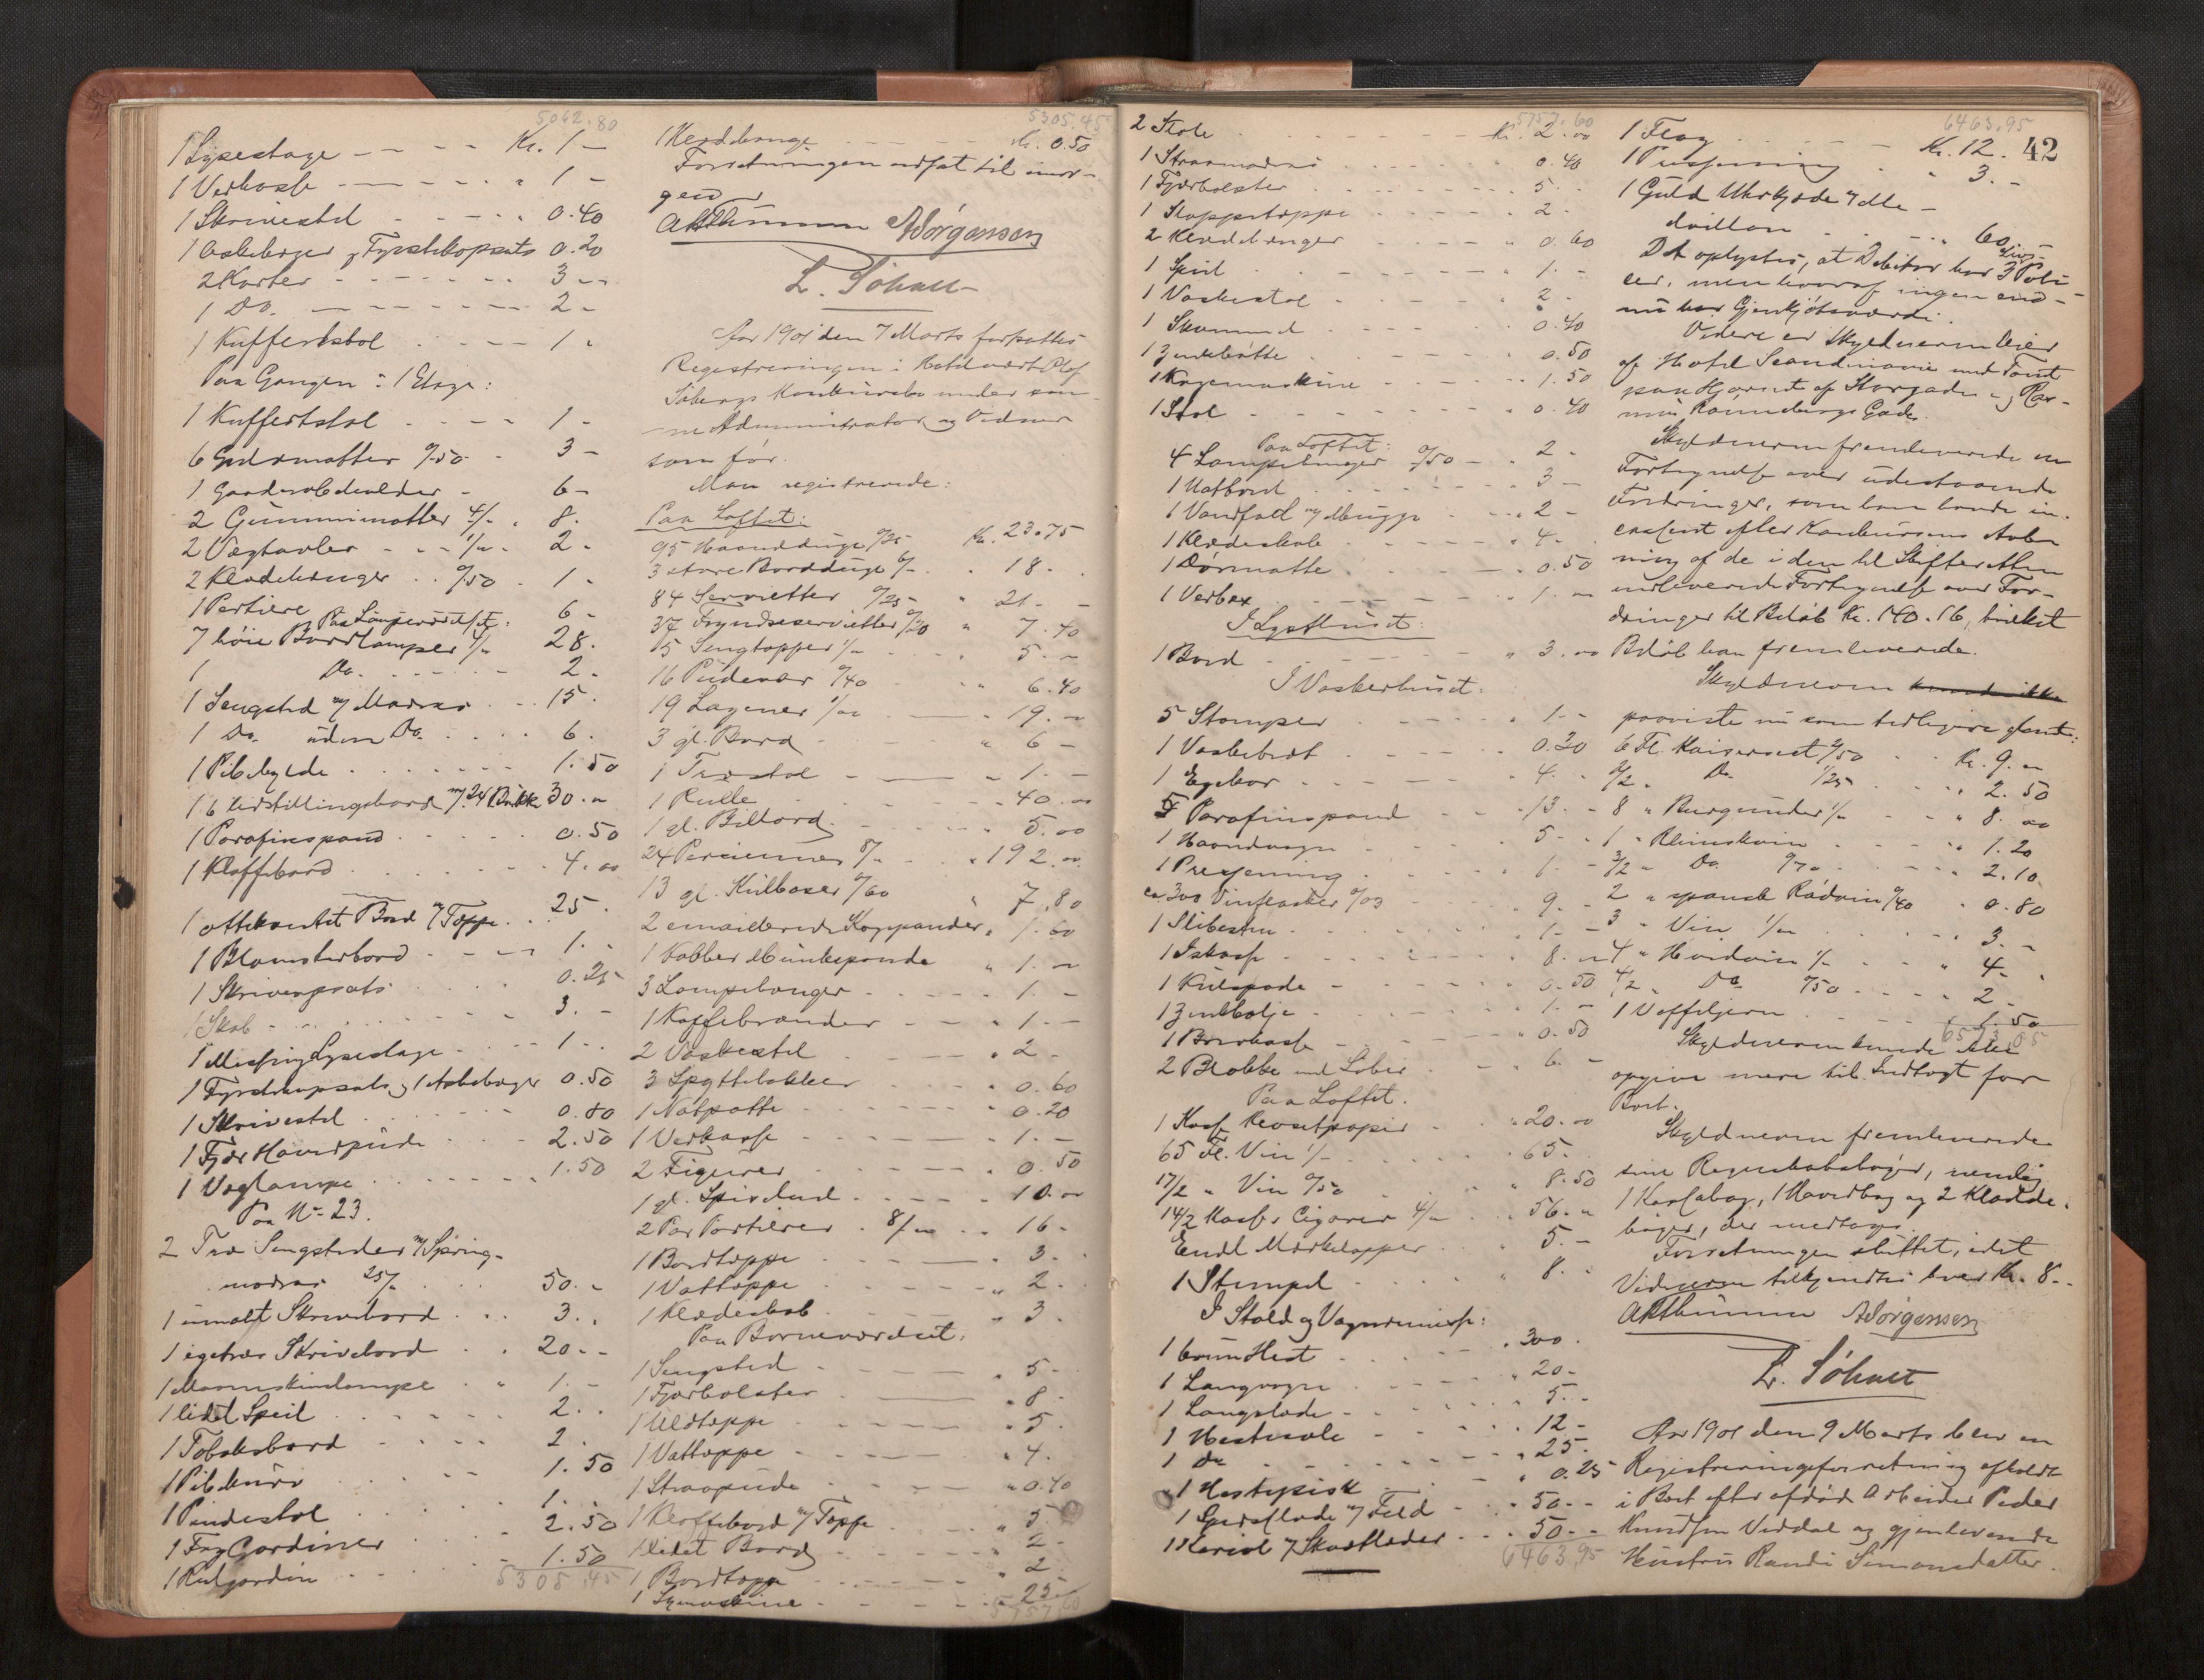 5062.80
1 Lysestage - - - - Kr. 1 -
1 Vedkasse - - - - " 1 -
1 Skrivestel - - - - " 0.40
1 Askebæger & Fyrstikopsats 0.20
2 Karter - - - - 3 -
1 Do. - - - - 2 -
1 Kuffertstol - - - 1 -
Paa Gangen i 1 Etage:
1 Kuffertstol - - - 1 -
6 Gulvmatter 0/50 - 3 -
1 Garderobeholder - 6 -
2 Gummimatter 4/- . 8.
2 Vægtavler - - 1/- . 2 -
2 Klædehænger . . 0/50 . 1 -
1 Portiere 6 -
Paa Lampeværelset:
7 höie Bordlamper 4/- 28.
1 Do. - - - - 2.
1 Sengested m/ Madras . . 15.
1 Do. uden Do. . . . 6.
1 Pibehylde . . . . 1.50
1 Parafinspand . . . . 0.50
1 Kloffebord . . . . 4.00
1 ottekantet Bord m/ Teppe . . 25.
1 Blomsterbord - - - 1. -
1 Skriveopsats . . . 0.25
1 Skab - . . . . 3. -
1 Messing Lysestage . . . 1 - -
1 Fyrstikopsats & 1 Askebæger 0.50
1 Skrivestel . . . . 0.80
1 Fjær Hovedpude . . . 2.50
1 Væglampe . . . . 1.50
Paa No 23.
2 Træ Sengesteder m/ Spring-
madras 25/- . . . 50. -
1 umalt Skrivebord . . . 3. .
1 egetræs Skrivebord . . 20 - -
1 Maaneskinslampe . " 1. -
1 lidet Speil . . . . 2. .
1 Tobaksbord . . . . 2
1 Pibekurv . . . . 1.50
1 Pindestol . . . . 1. -
1 Fag Gardiner . . . . 2.50
1 Rulgardin . . . . 1.50
5305.45
5305.45
1 Klædehænge - - - Kr. 0.50
Forretningen udsat til imor-
gen
AHThunem AJörgensen
L. Söhuet
Aar 1901 den 7 Marts fortsattes
Registreringen i Hotelvært Olaf
Söbergs Konkursbo under sam-
me Administrator og Vidner
som för.
Man registrerede:
Paa Loftet:
95 Haandduge 0/25 Kr. 23.75
3 store Bordduge 6/- . . 18 .
84 Servietter 0/25 " 21 - -
37 Frynseservietter 0/20 " 7.40
5 Sengtepper 1/- . . 5. -
16 Pudevar 0/40 . . 6.40
19 Lagener 1/00 . - . 19. -
3 gl. Bord - - " 6 -
1 Træstol - - - " 1. -
1 Rulle - - - 40.00
1 gl. Billard . . . . 5.00
24 Persienner 8/- . . . 192.00
13 gl. Kulboxer 0/60 " 7.80
2 emaillerede Kogepander " 1.60
1 Kobber " 1. -
3 Lampehænger . . . . 1. -
1 Kaffebrænder - - . 1. -
2 Vaskestel . . . 2 -
3 Spyttebakker . . . " 0.60
1 Natpotte - - - " 0.20
1 Vedkasse - - - " 1. -
2 Figurer . - - - . 0.50
1 gl. Spisebud - - - " 10.00
2 Par Portierer . 8/00 . . 16 -
1 Bordteppe . . - - . 3. .
1 Vatteppe . . . . " 2 .
1 Klædeskab . . - " 3 .
Paa Barneværelset:
1 Sengested - - - " 5 -
1 Fjærbolster . - - . 8 -
1 Uldteppe - - - - . 5 .
1 Vatteppe - - - " 4.
1 Straapude . . . . " 0.40
1 Kloffebord m/ Teppe . . . . " 5 -
1 lidet Bord . . . . . " 2 -
1 Bordteppe - - - - " 2.
1 Symaskine - - - - . 25 -
5757.60
5757.60
2 Stole . - - - - Kr. 2.00
1 Straamadras . - - - 0.40
1 Fjærbolster . . . . . 5 . .
1 Stoppeteppe . . . . 2 -
2 Klædehænger - - - " 0.60
1 Speil . . - - - - . 1. -
1 Vaskestol - . . . . " 2 -
1 Skammel . - - - - " 0.40
1 Zinkbötte . - - - " 0.50
1 Kogemaskine - . . . . 1.50
1 Stol - - - - - 0.40
Paa Loftet:
4 Lampehænger 0/50 - . 2 -
1 Natbord . . . . . . " 3 -
1 Vandfad m/ Mugge . . . . " 2 -
1 Klædeskab . . . . . " 4 -
1 Dörmatte . . . . . - . 0.50
1 Vedbox . . - - - . 1. 00
I Lysthuset:
1 Bord - - - - - " 3.00
I Vaskerhuset:
5 Stamper . . . . " 1 - -
1 Vaskebræt . . . . . 0.20
1 Egekar . . - - - - . 4. -
5 Parafinspand . . . . - 13. -
1 Haandvogn . . . . . 5 - -
1 Presenning . . . . . 1. -
ca 300 Vinflasker 0/03 - - 9. -
1 Slibesten . . . . . 1 - -
1 Iskasse - . . . . . 8. -
1 Kulspade - - - - - 0.50
1 Zinkbalje . - . . . . 1. -
1 Brödkasse . - - - " 0.50
2 Blokke med Löber . . - . 6. -
Paa Loftet.
1 Kasse Klosetpapir . . " 20.00
65 Fl. Vin 1/- . . . " 65. -
17/2 " Vin 0/50 . " 8.50
14/2 Kasser Cigarer 4/- . . 56. -
Endl Mærkelapper . . . . 5. -
1 Stempel . - - . . " 8. .
I Stald og Vognremisse:
1 brun Hest . . . . . 300 .
1 Langvogn - - - - " 20 -
1 Langslæde - . . . . 5 - -
1 Hestesæle - - - - 12 -
1 Do . - - - - " 25 -
1 Hestepisk . . . . . 0.25
1 Spidsslæde m/ Feld - . . 50 - -
1 Kariol m/ Skvætlæder . . . 50 - -
6463.95
42
6463.95
1 Flag . . . . Kr. 12. -
1 Presenning . . . " 3. -
1 Guld Uhrkjæde m/ dto
. . . " 60 -
Det oplystes, at Debitor har 3 Livs-Poli-
cer, men hvoraf ingen end-
nu har Gjenkjöbsværdi.
Videre er Skyldneren Eier
af Hotel Scandinavie med Tomt
paa Hjörnet af Storgaden og Ras-
mus Rönnebergs Gade.
Skyldneren fremleverede en
Fortegnelse over udestaaende
Fordringer, som han havde in-
casseret efter Konkursens Aab-
ning af de i den til Skifteretten
indleverede Fortegnelse over For-
dringer til Belöb Kr. 140.16, hvilket
Belöb han fremleverede.
Skyldneren kunde ikke
paaviste nu som tidligere glemt:
6 Fl. Kaisersekt 1/50 . . Kr. 9. -
2/2 " Do. 1/25 . . " 2.50
8 " Burgunder 1/- - . " 8.00
1 " Rhinskvin - . . " 1.20
3/2 " Do. 0/70 . . . " 2.10
2 " spansk Rödvin 0/40 . " 0.80
3 " Vin 1/00 . . . . " 3. -
4 " Hvidvin 1/- . " 4 - .
4/2 " Do. 0/50 . . . " 2 -
1 Vaffeljern . . . . - 1.50
6573.05
Skyldneren kunde ikke
opgive mere til Indtægt for
Boet.
Skyldneren fremleverede
sine Regnskabsböger, nemlig
1 Kassabog, 1 Hovedbog og 2 Kladde-
böger, der medtoges.
Forretningen sluttet, idet
Vidnerne tilkjendtes hver Kr. 8 - -
AHThunem AJörgensen
L. Söhuet
Aar 1901 den 9 Marts blev en
Registreringsforretning afholdt
i Boet efter afdöd Arbeider Peder
Knudsen Viddal og gjenlevende
Hustru Randi Simonsdatter.